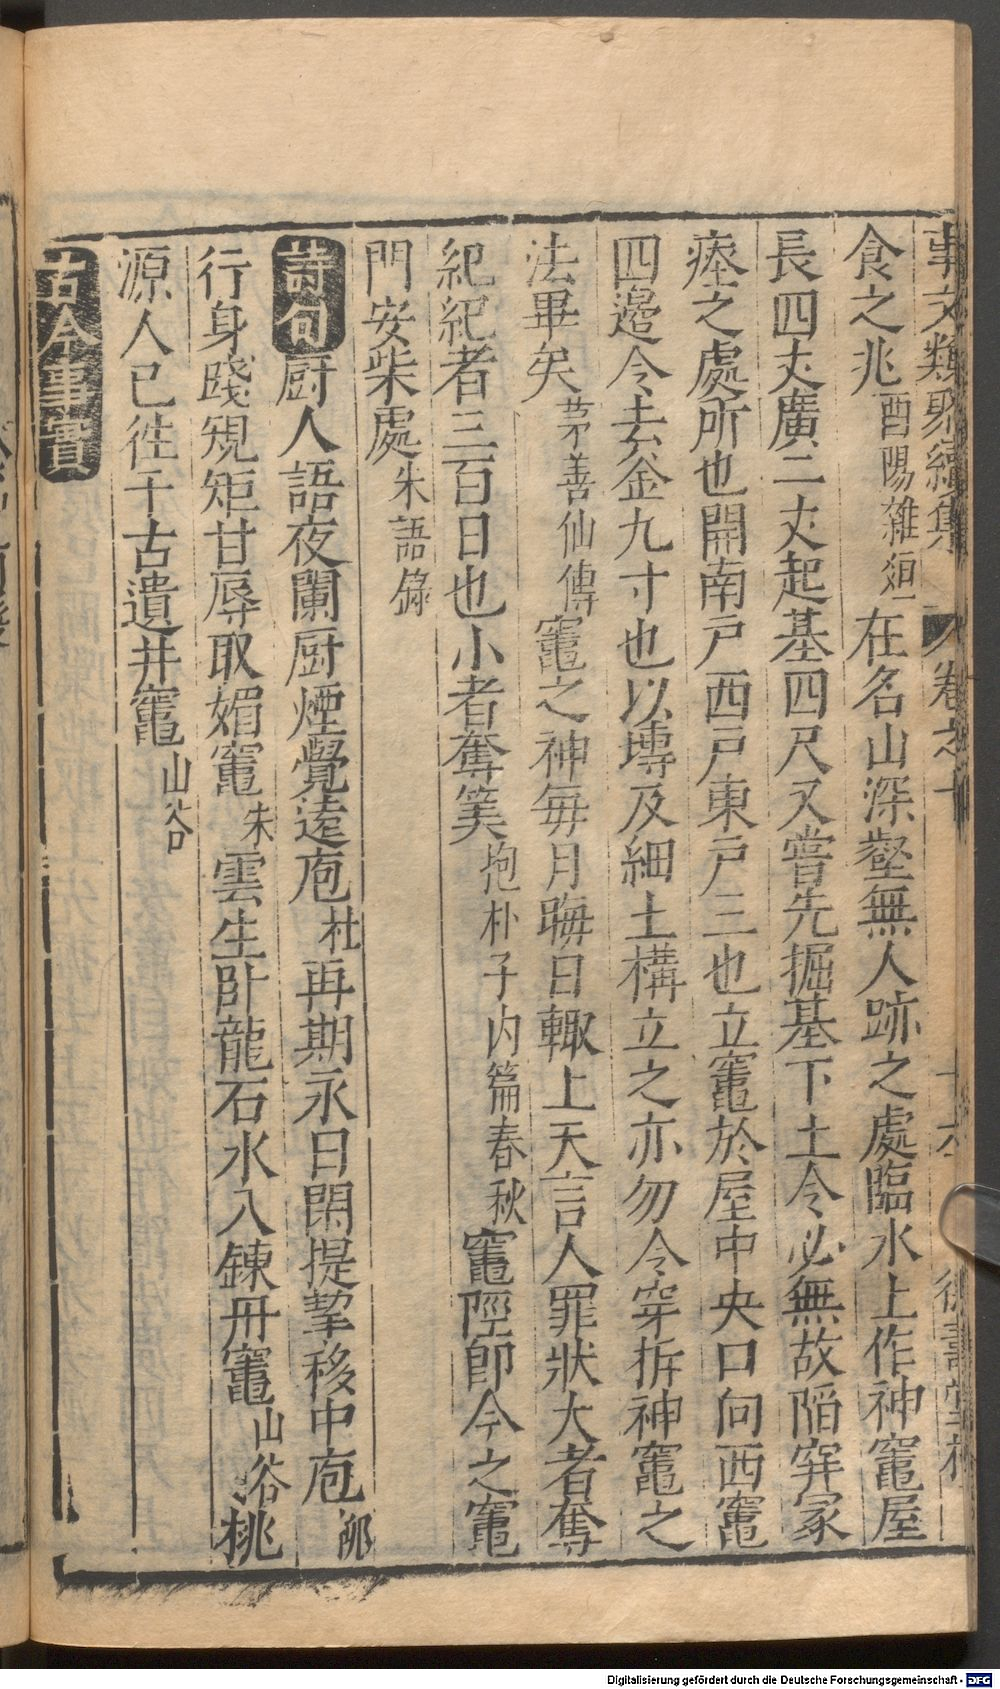 事文類聚續集 卷之十
食之兆酉陽雜俎在名山深壑無人跡之處臨水上作神竈屋
長四丈廣二丈起基四尺又嘗先掘基下土令必無故陷穽冢
瘞之處所也開南戸西戸東戸三也立竈於屋中央口向西竈
四邉令去釜九寸也以塼及細土構立之亦勿令穿拆神竈之
法畢矣茅善仙傳竈之神毎月晦日輙上天言人罪狀大者奪
紀紀者三百日也小者奪筭抱朴子内篇春秋竈陘卽今之竈
門安柴處朱語錄
詩句厨人語夜闌厨煙覺逺庖杜再期永日閑提挈移中庖
行身踐䂓矩甘辱取媚竈朱雲生卧龍石水入錬丹竈山谷桃
源人已徃千古遺井竈山谷
古今事實
Digitalisierung gefördert durch die Deutsche Forschungsgemeinschaft - DFG